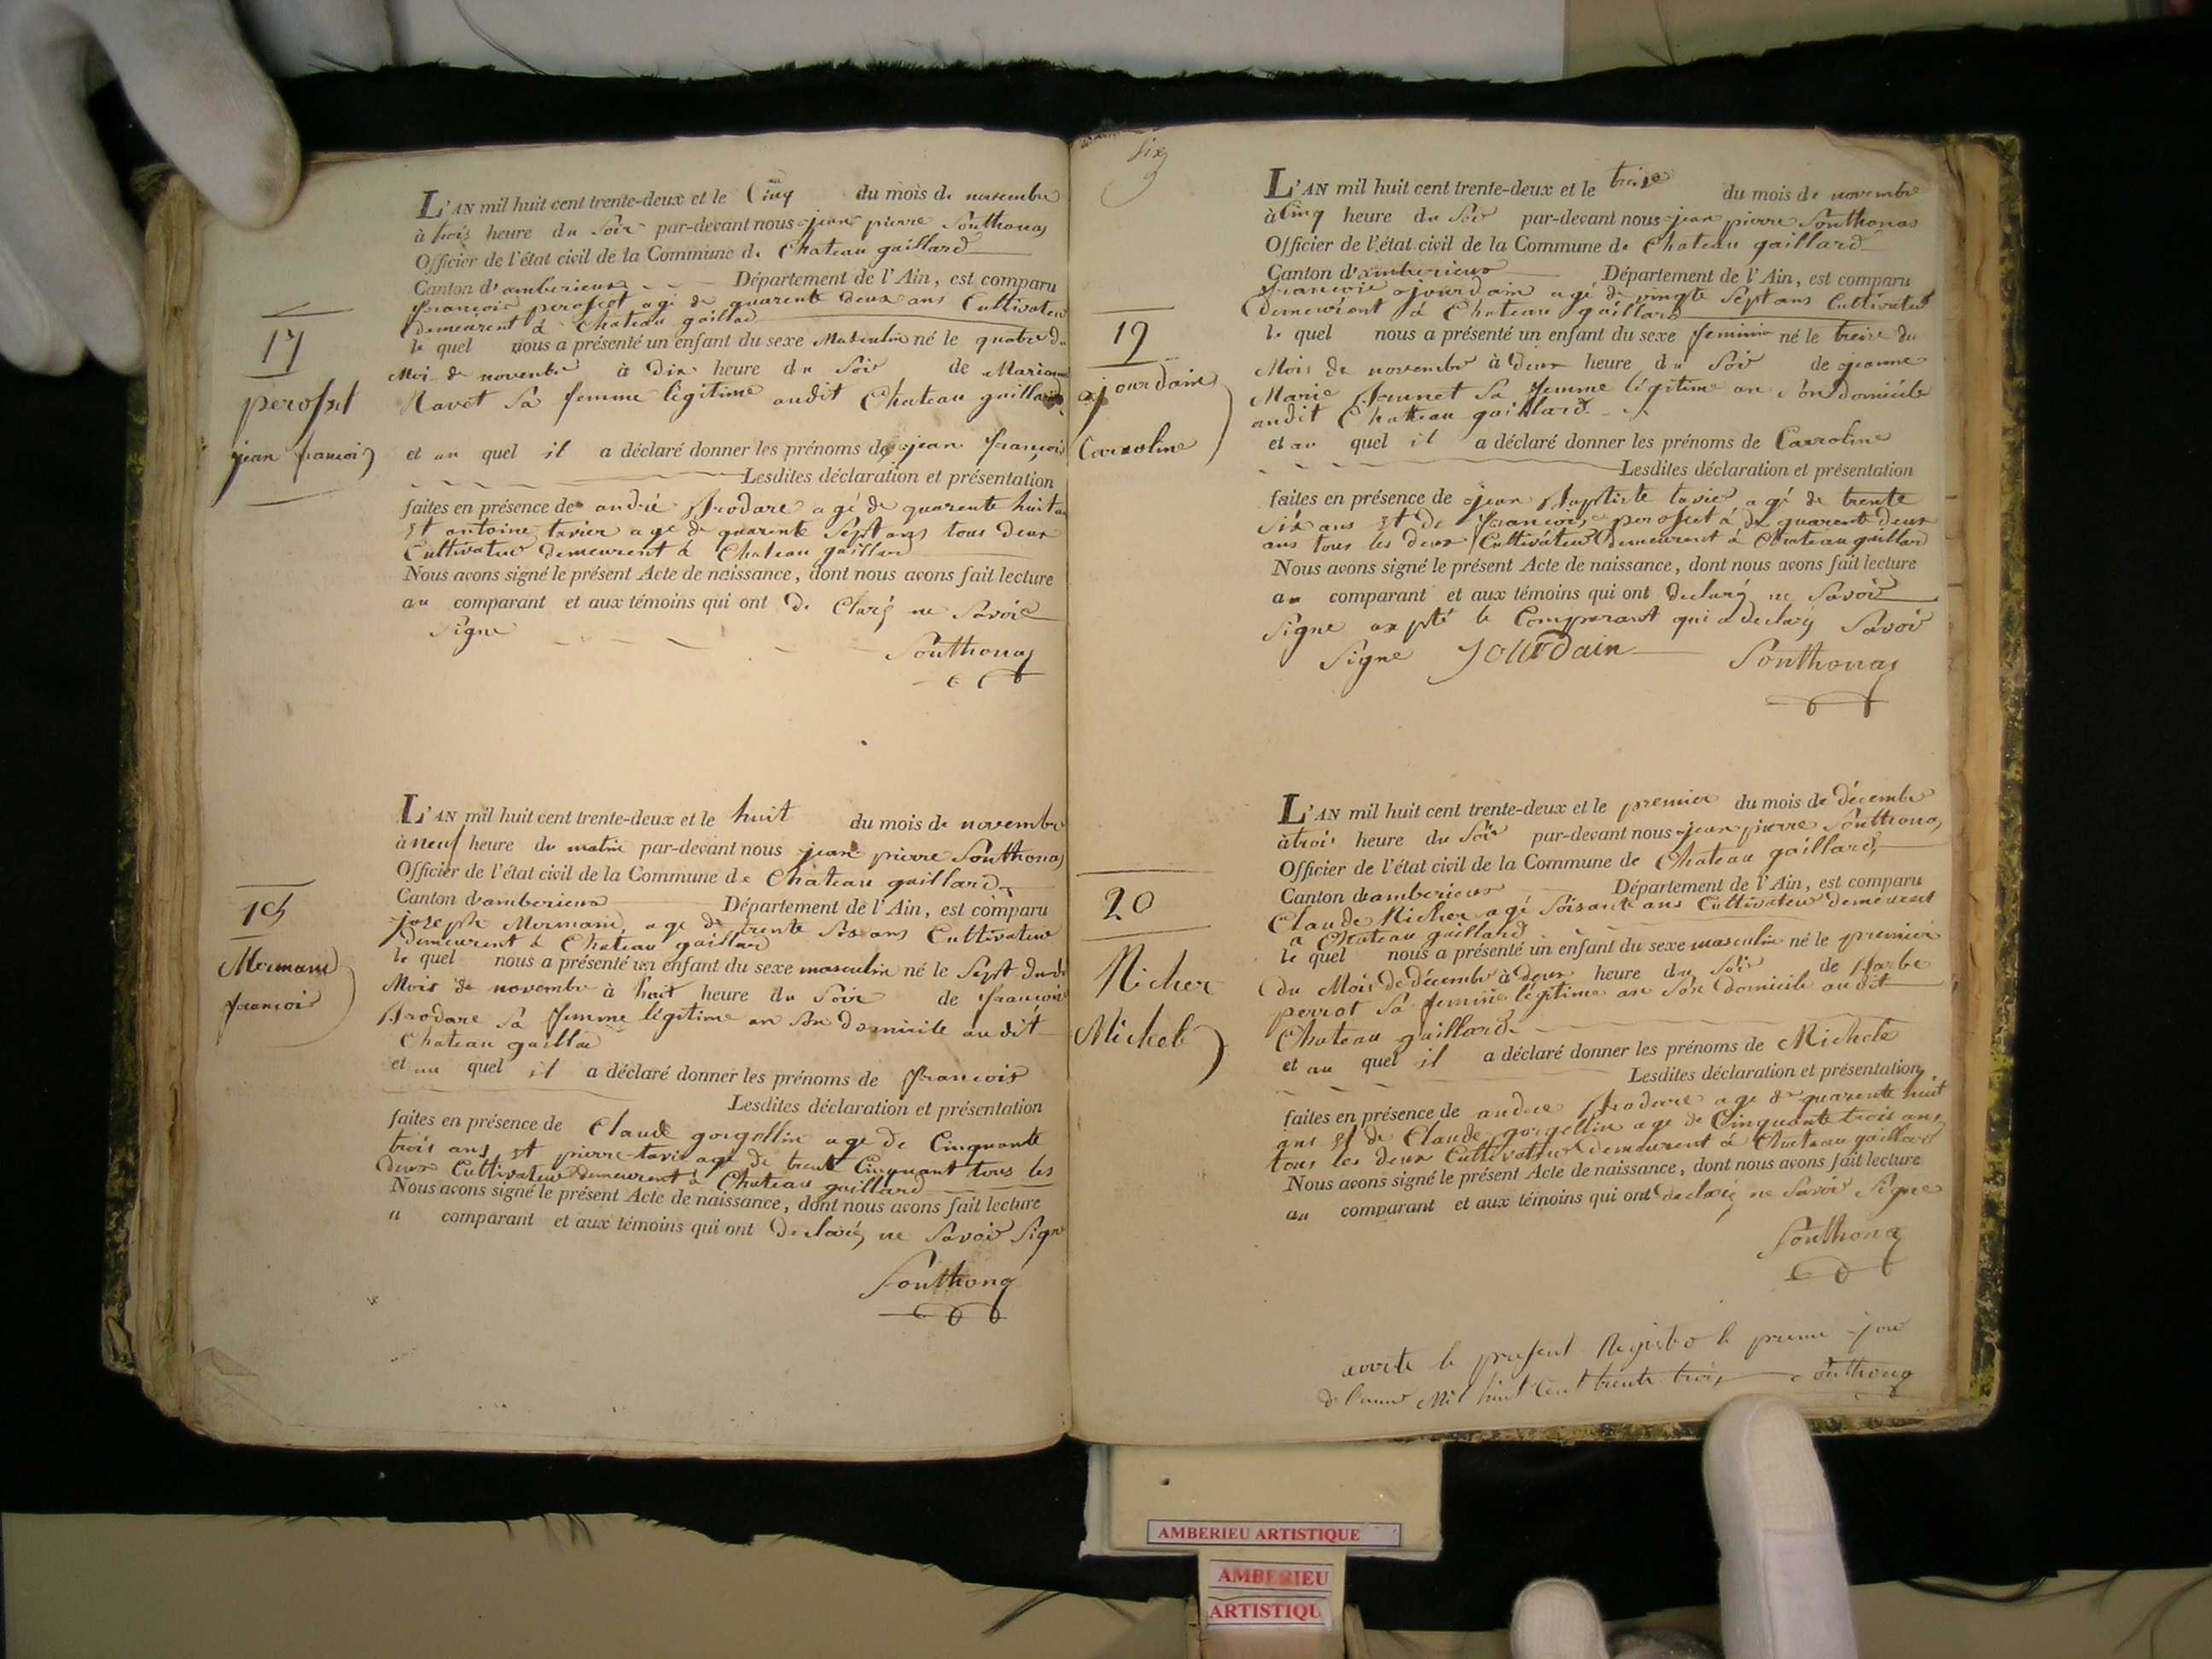 17
perosset
jean francois
L'AN mil huit cent trente-deux et le Cinq du mois de novembre
à trois heure du Soir par-devant nous jean pierre Sonthonas
Officier de l'état civil de la Commune de Chateau gaillard
Canton d'amberieux Département de l'Ain, est comparu
françois perosset agé de quarente deux ans Cultivateur
demeurent à Chateau gaillad
le quel nous a présenté un enfant du sexe Masculin né le quatre du
Moi de novembre à Dix heure du Soir de Marianne
Ravet Sa femme légitime audit Chateau gaillard
et au quel il a déclaré donner les prénoms de jean françois
Lesdites déclaration et présentation
faites en présence de andré Brodare agé de quarente huit an
Et antoine tavier agé de quarente Sept ans tous deux
Cultivateur demeurent à Chateau gaillard
Nous avons signé le présent Acte de naissance, dont nous avons fait lecture
au comparant et aux témoins qui ont De Claré ne Savoir
Signe
Sonthonas
18
Mermand
francois
L'AN mil huit cent trente-deux et le huit du mois de novembre
à neuf heure du matin par-devant nous jean pierre Sonthonas
Officier de l'état civil de la Commune de Chateau gaillard
Canton d'amberieux Département de l'Ain, est comparu
joseph Mermand, agé de trente Six ans Cultivateur
demeurent à Chateau gaillard
le quel nous a présenté un enfant du sexe masculin né le Sept dudi
Mois de novembre à huit heure du Soir de françoise
Brodare Sa femme légitime an Son domicile audit
Chateau gaillar
et au quel il a déclaré donner les prénoms de francois
Lesdites déclaration et présentation
faites en présence de Claude gorgollin agé de Cinquante
trois ans Et pierre tavie agé de trente Cinquant tous les
deux Cultivateur demeurent à Chateau gaillard
Nous avons signé le présent Acte de naissance, dont nous avons fait lecture
a comparant et aux témoins qui ont Declaré ne Savoir Signe
Sonthonas
Six
19
jourdain
Carroline
L'AN mil huit cent trente-deux et le treise du mois de novembre
à Cinq heure du Soir par-devant nous jean pierre Sonthonas
Officier de l'état civil de la Commune de Chateau gaillard
Canton d'amberieux Département de l'Ain, est comparu
françois jourdain agé de vingte Sept ans Cultivateur
demeurant à Chateau gaillard
le quel nous a présenté un enfant du sexe feminin né le treise du
Mois de novembre à Deux heure du Soir de jeanne
Marie Brunet Sa femme légitime an Son domicile
audit Chatteau gaillard
et au quel il a déclaré donner les prénoms de Carroline
Lesdites déclaration et présentation
faites en présence de jean Baptiste tavier agé de trente
Six ans Et de françois perosset á de quarente deux
ans tous les deux Cultivateur demeurent à Chateau gaillard
Nous avons signé le présent Acte de naissance, dont nous avons fait lecture
au comparant et aux témoins qui ont declaré ne Savoir
Signe axpté le Comparant qui a declaré Savoir
Signe Jourdain Sonthonas
20
Nicher
Michel
L'AN mil huit cent trente-deux et le premier du mois de décembre
à trois heure du Soir par-devant nous jean pierre Sonthonas
Officier de l'état civil de la Commune de Chateau gaillard
Canton d'amberieux Département de l'Ain, est comparu
Claude Nicher agé Soisante ans Cultivateur demeurent
a Chateau gaillard
le quel nous a présenté un enfant du sexe masculin né le premier
du Mois De décembre à deux heure du Soir de Barbe
perrot Sa femme légitime an Son Domicile audit
Chateau gaillard
et au quel il a déclaré donner les prénoms de Michele
Lesdites déclaration et présentation
faites en présence de andre Brodare agé de quarente huit
ans Et de Claude gorgollin agé de Cinquante trois ans
tous les deux Cultivateur demeurent à Chateau gaillard
Nous avons signé le présent Acte de naissance, dont nous avons fait lecture
au comparant et aux témoins qui ont declaré ne Savoir Signe
Sonthonas
le present Registre le jour
de Mil huit Cent trente trois Sonthonas
AMBERIEU ARTISTIQUE
AMBERIEU
ARTISTIQU